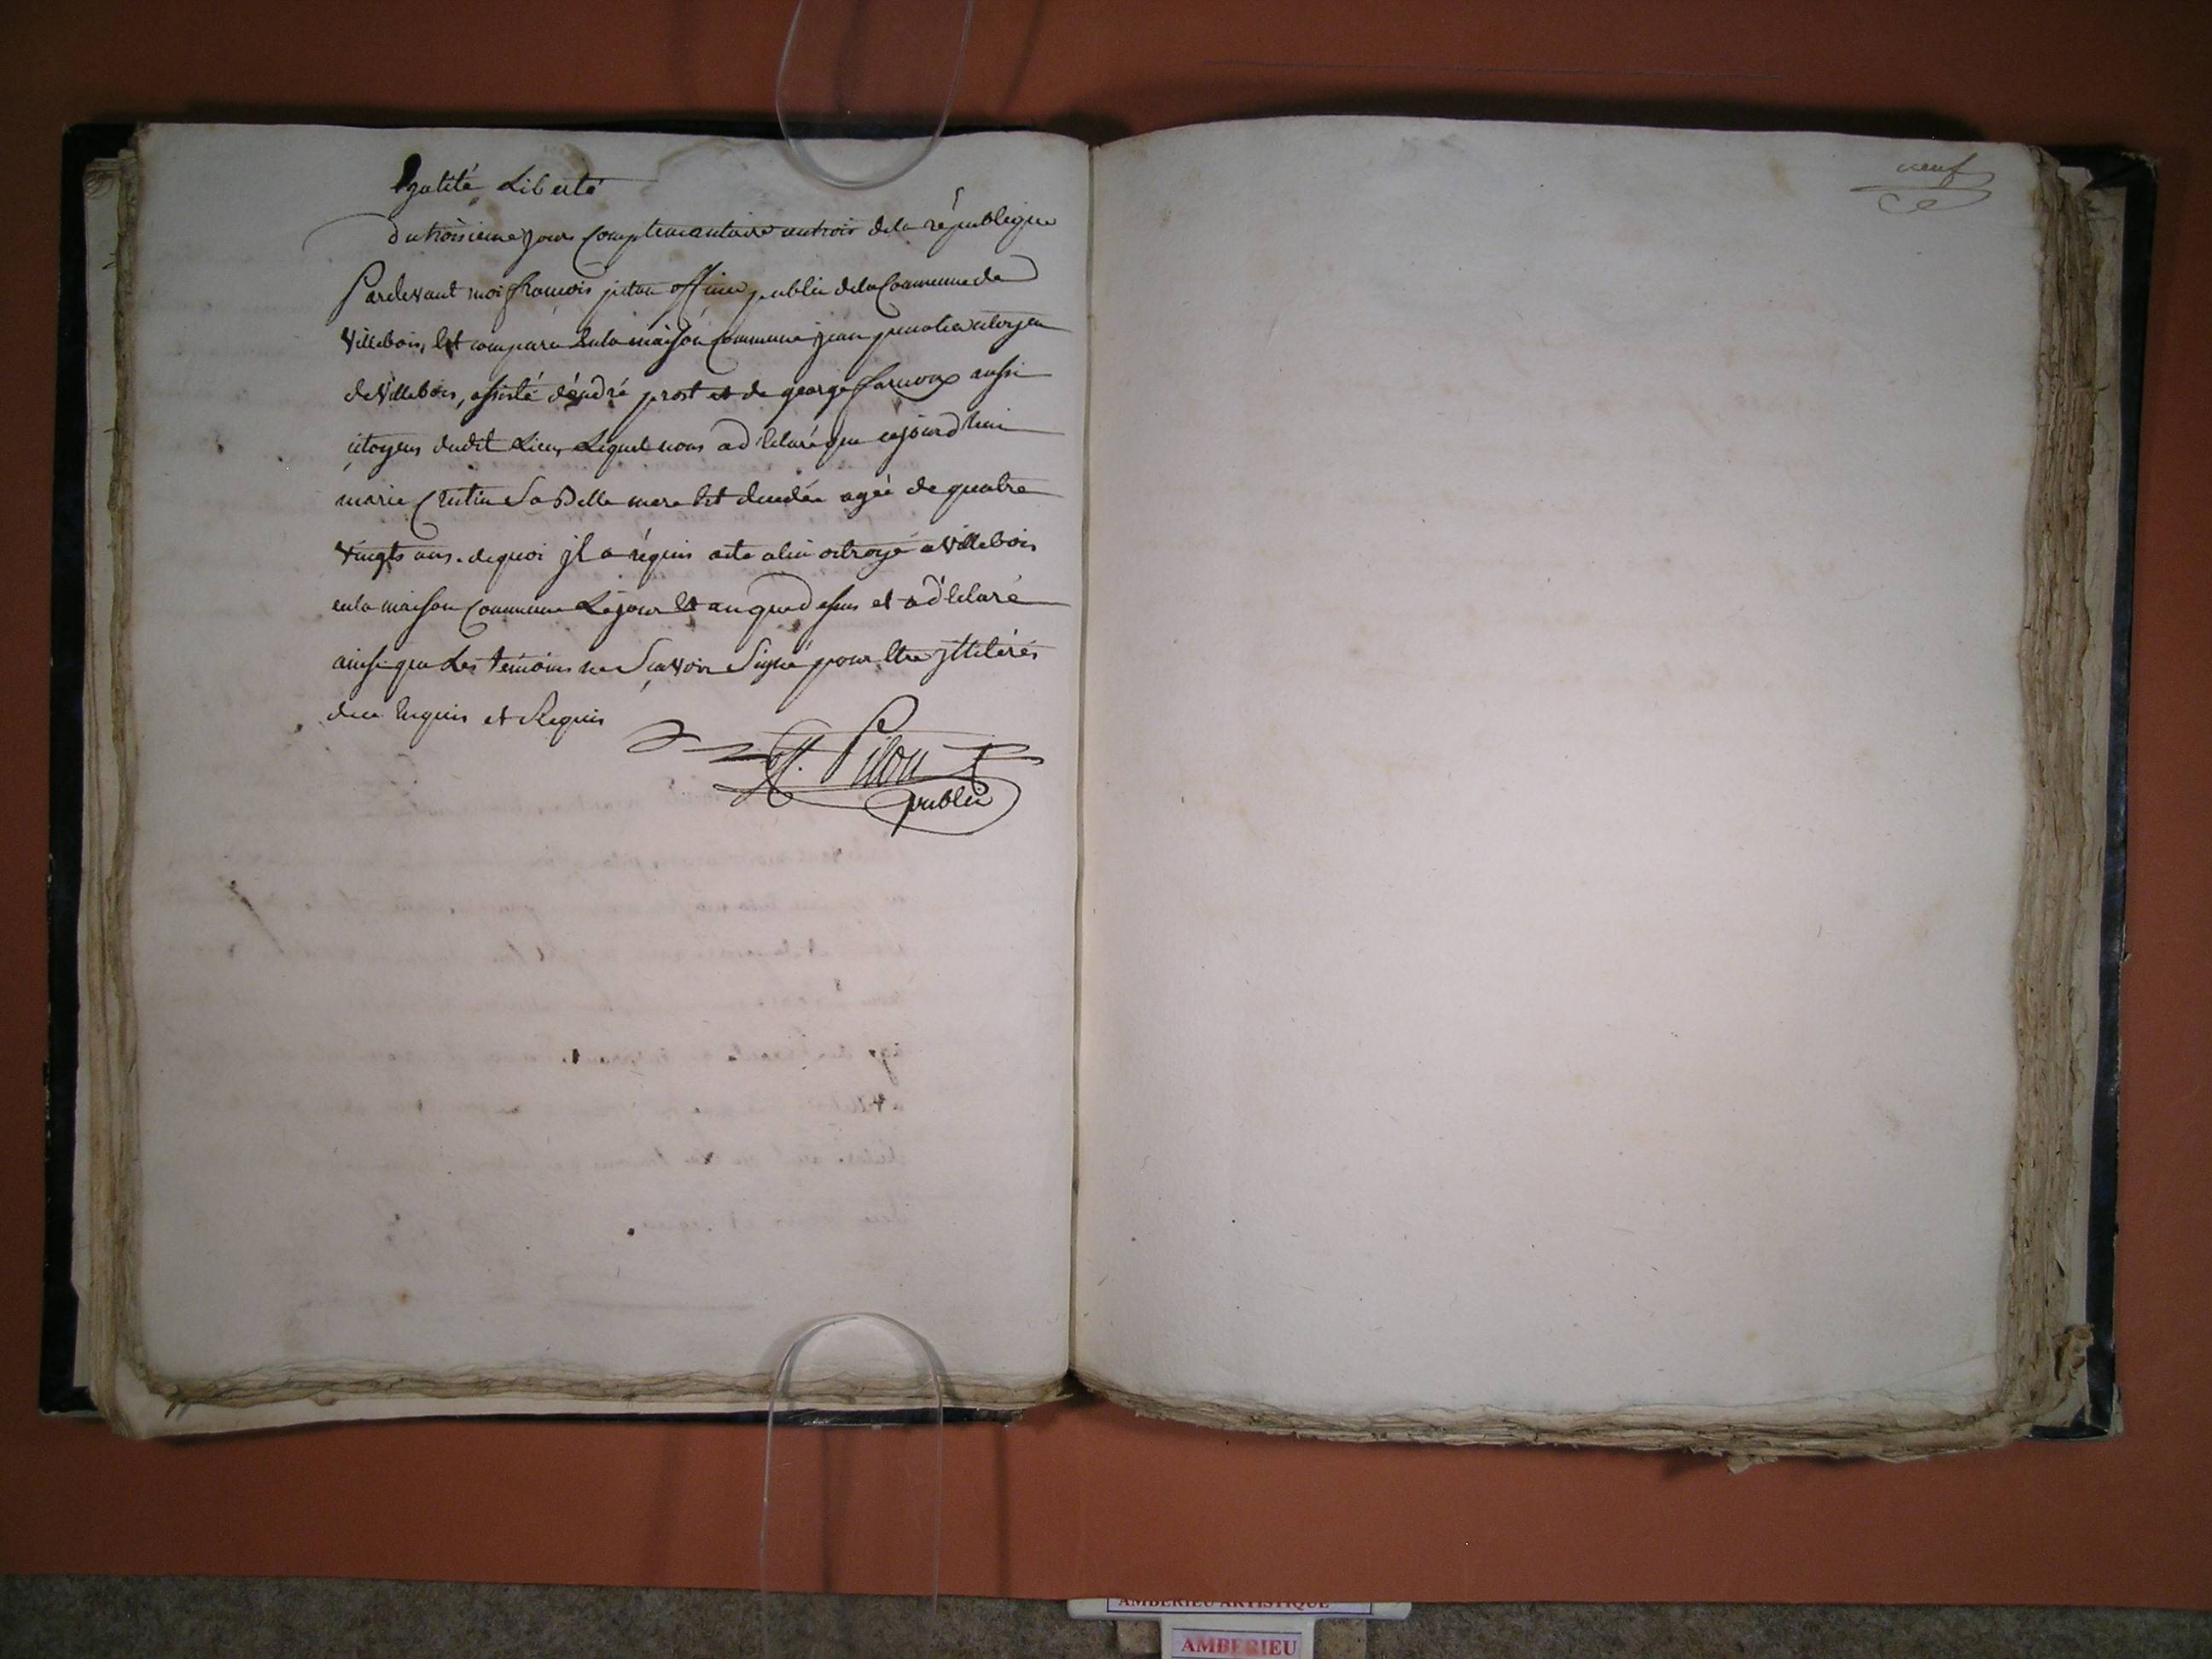 Egalité Liberté
du troisieme jour complementaire an trois de la république
Pardevant moi françois piton officier public de la Commune de
villebois, est comparu en la maison Commune jean citoyen
de villebois, assisté d'éndré prost et de george aussi
citoyens dudit Lieu, Lequel nous a déclaré que cejourd'hui
marie sa Belle mere est décedée agée de quatre
vingts ans. de quoi jl a réquis acte a lui octroyé a villebois
en la maison Commune Le jour et an que dessus et a déclaré
ainsi que Les témoins ne Sçavoir Signé pour être
de ce enquis et Requis
ff. Piton
public
neuf
AMBERIEU ARTISTIQUE
AMBERIEU